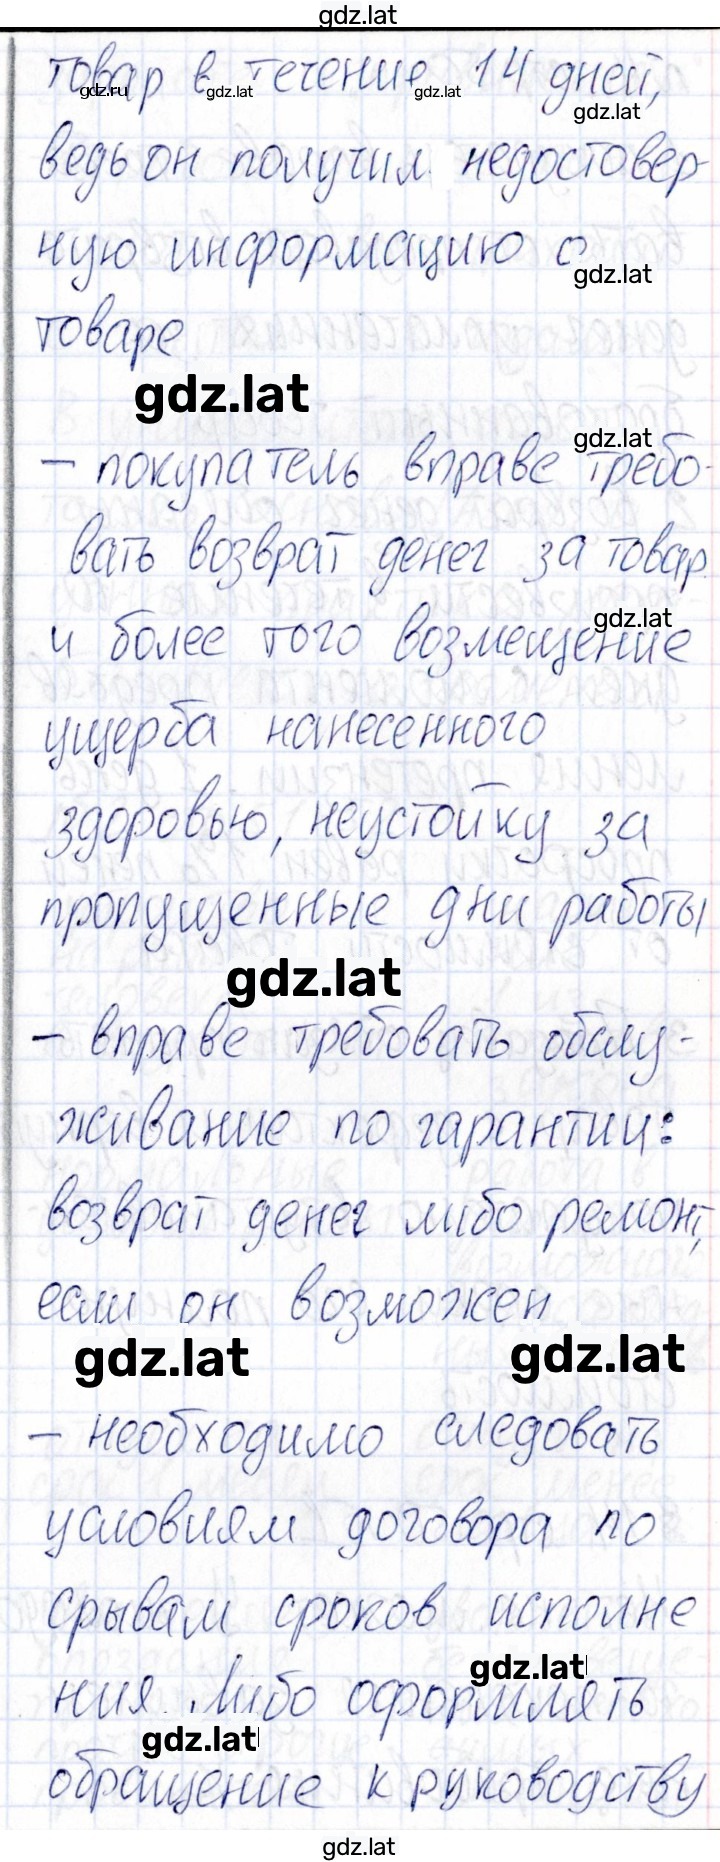 gdz.lat
товар в течение 14 дней,
gdz.ru gdz.lat gdz.lat gdz.lat
ведь он получил недостовер-
ную информацию о
gdz.lat
товаре
gdz.lat
gdz.lat
- покупатель вправе требо-
вать возврат денег за товар
gdz.lat
и более того возмещение
ущерба нанесенного
здоровью, неустойку за
пропущенные дни работы
gdz.lat
- вправе требовать обслу-
живание по гарантии:
возврат денег либо ремонт,
если он возможен
gdz.lat gdz.lat
- необходимо следовать
условиям договора по
срывам сроков исполне
gdz.lat
ния. Либо оформлять
gdz.lat
обращение к руководству
gdz.lat